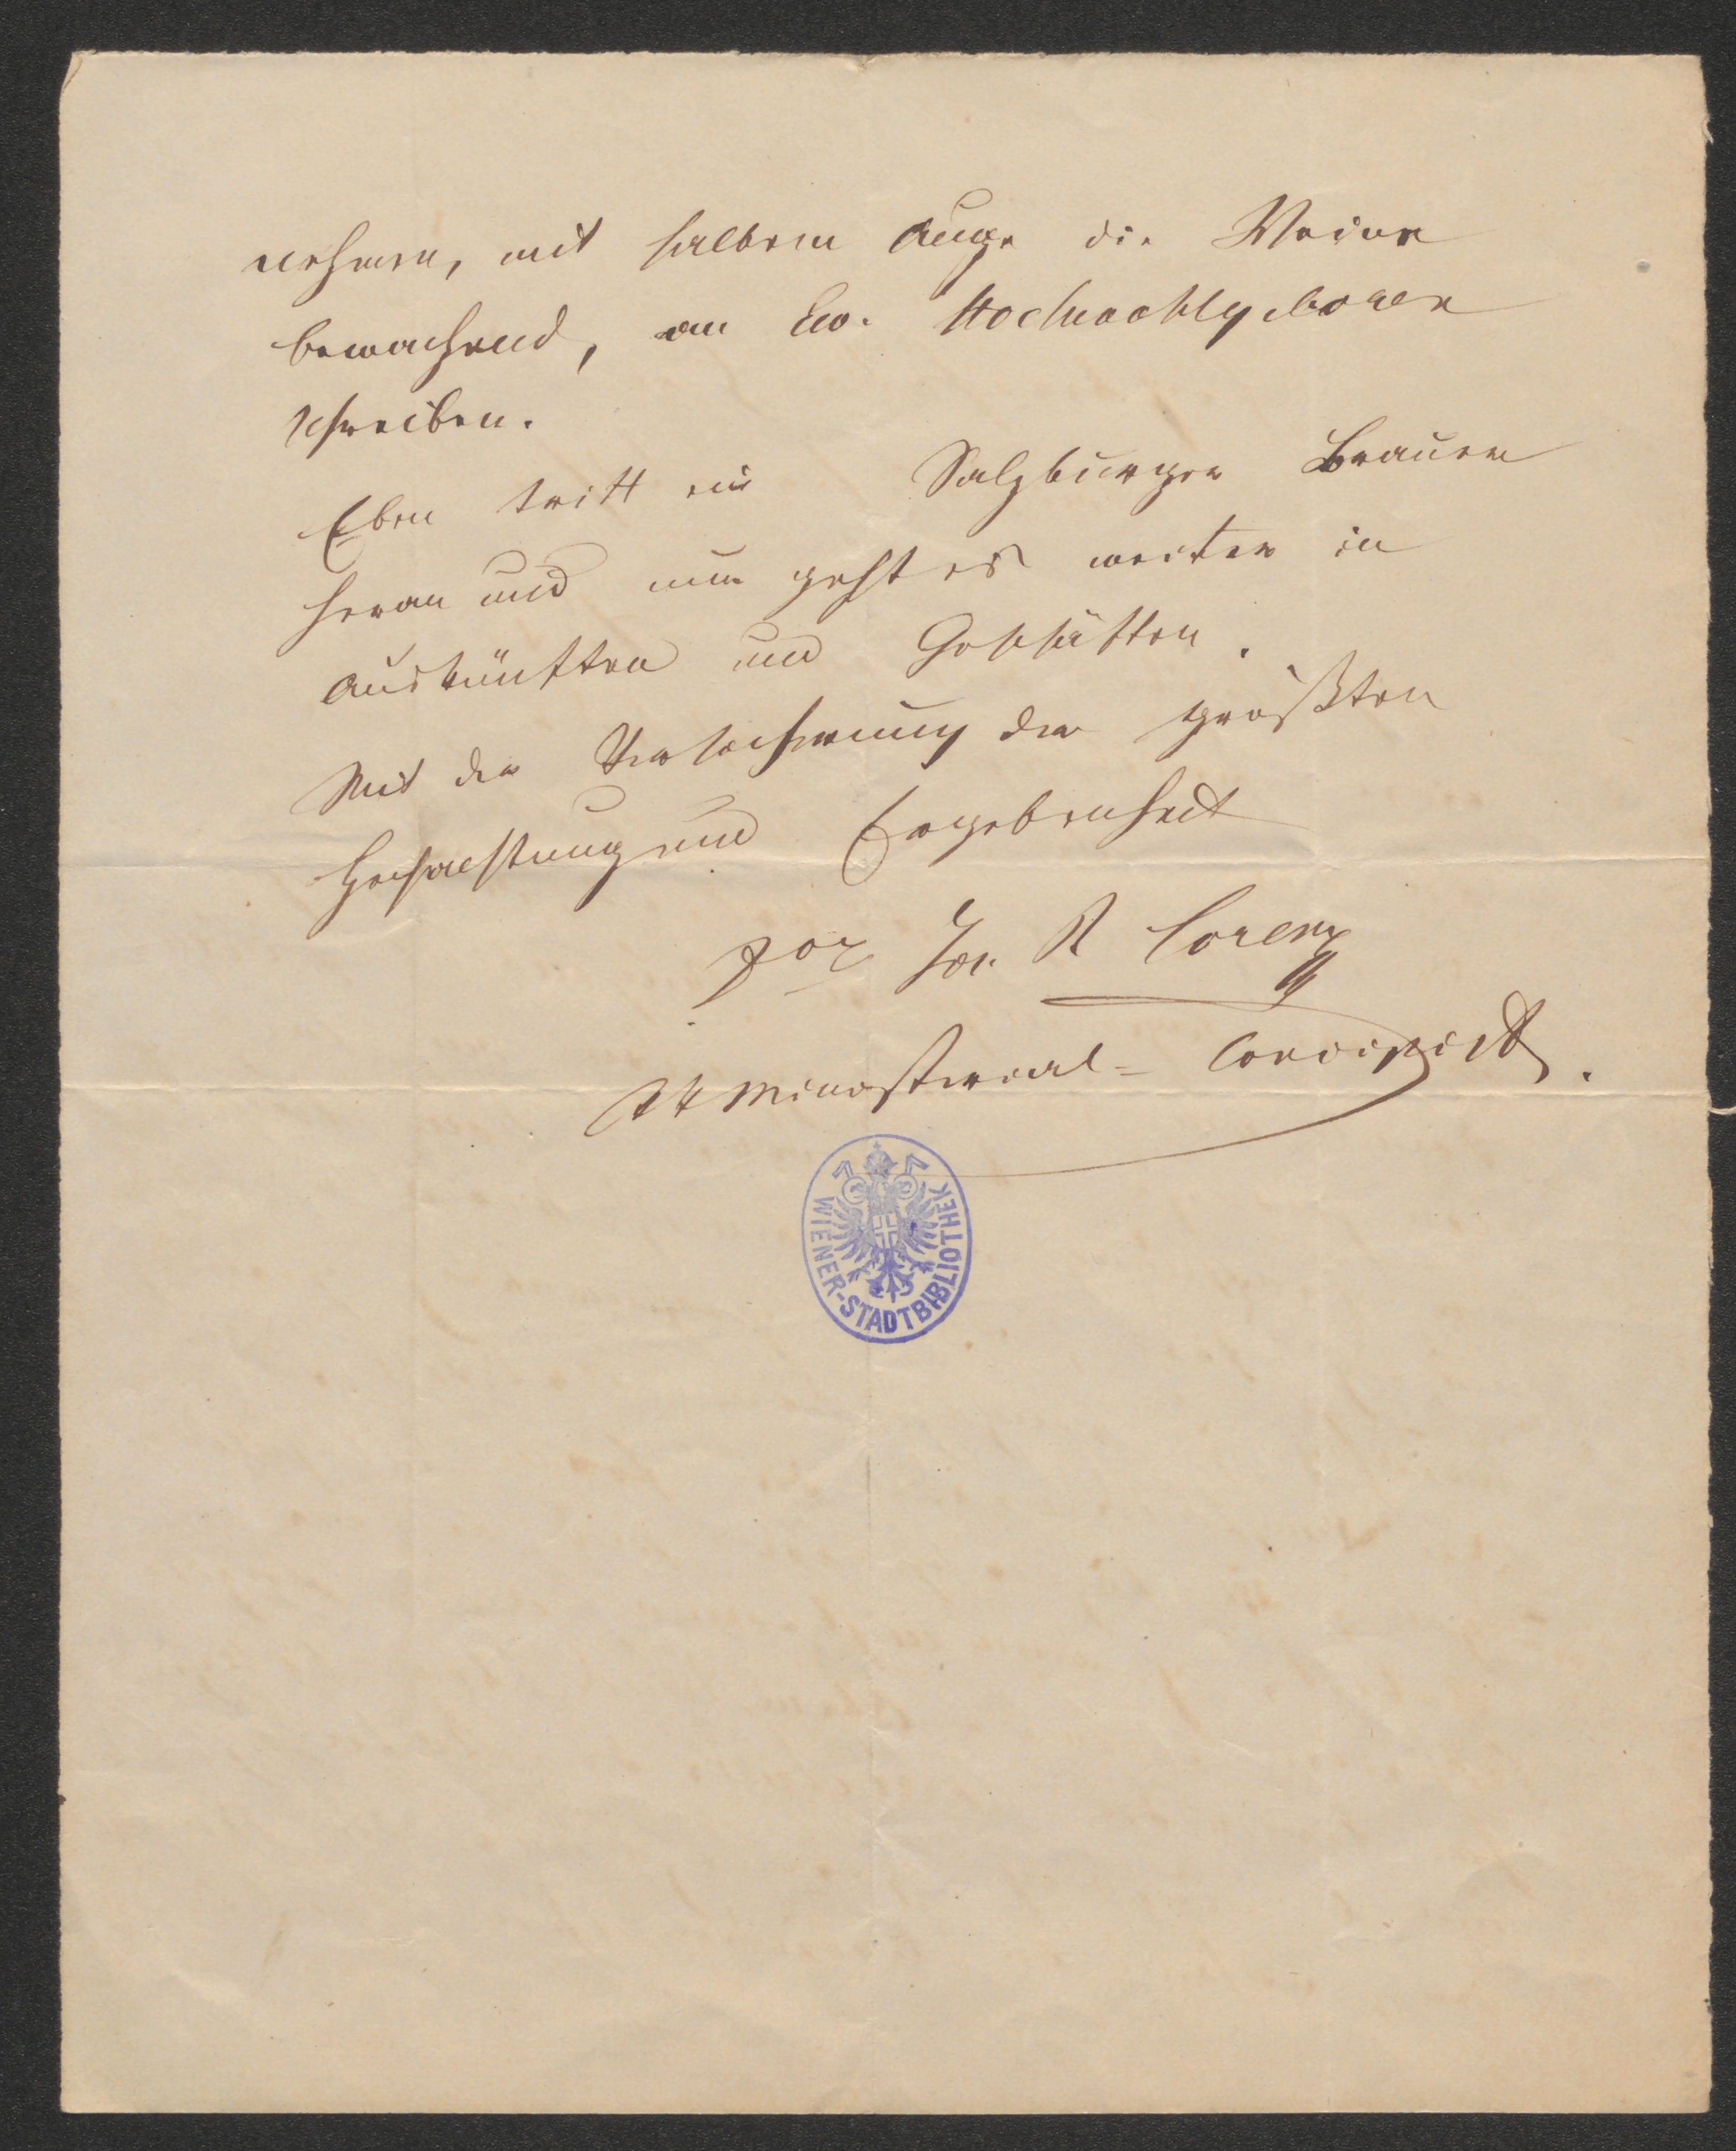 nehmen, mit halbem Auge die Weine
bewachend, an Ew. Hochwohlgeboren
schreiben.
Eben tritt ein Salzburger Brauer
heran und nun geht es weiter in
Auskünften und Geschäften.
Mit der Versicherung der größten
Hochachtung und Ergebenheit
Jos. R Lorenz
kk Ministerial-Concipist.
WIENER-STADTBIBLIOTHEK